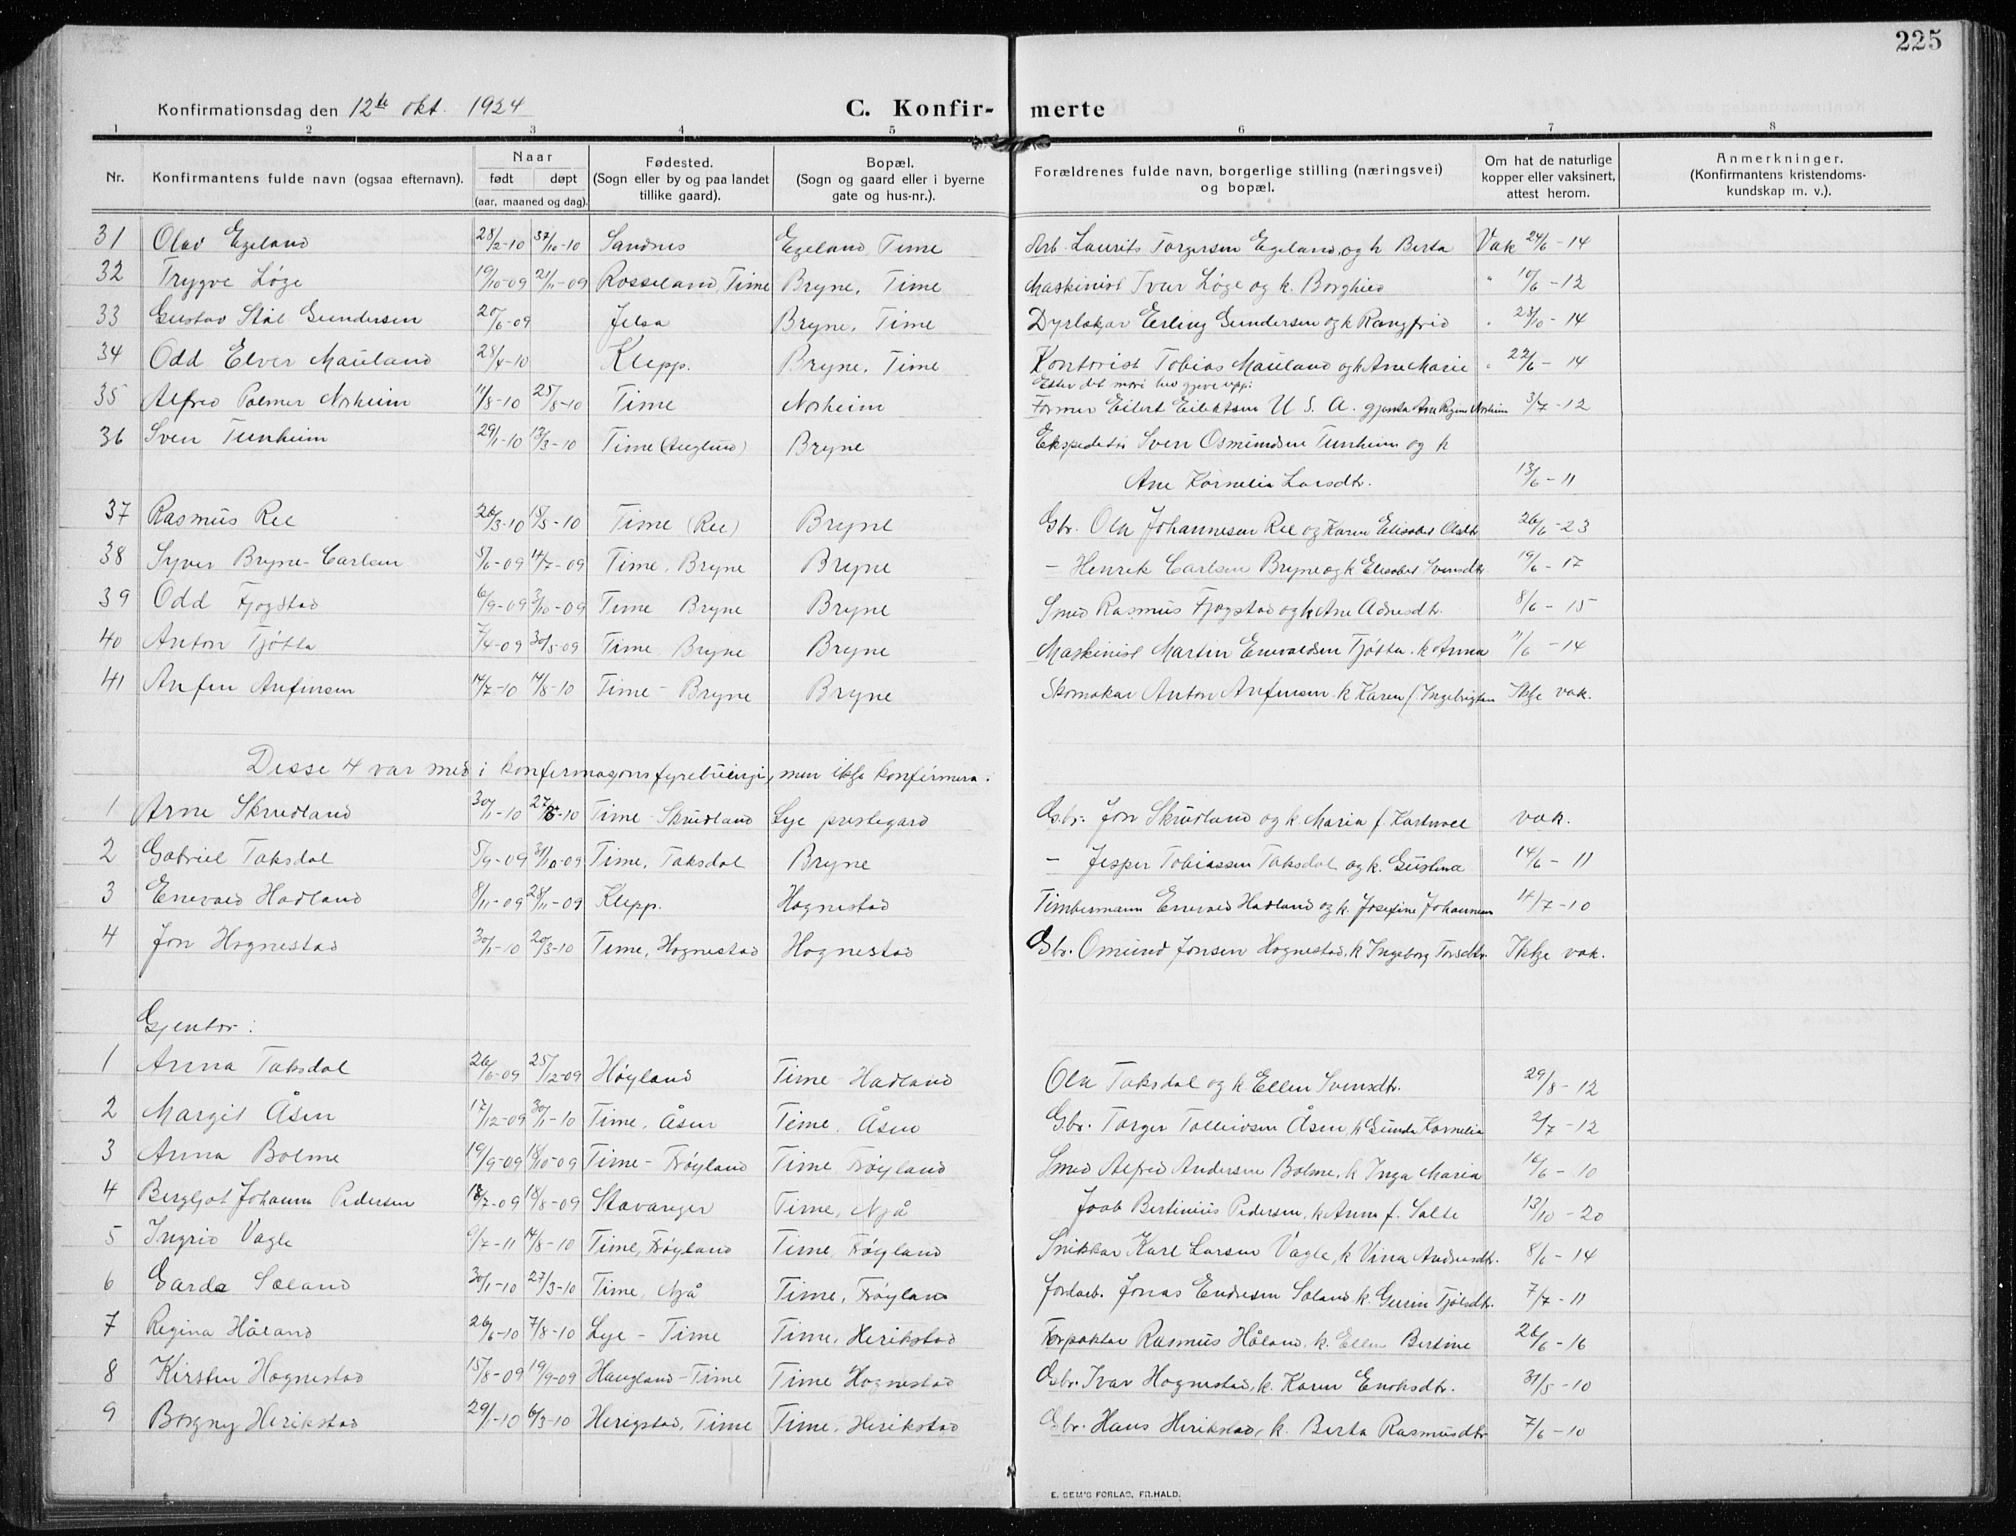 225
Konfirmationsdag den 12te okt. 1924 C. Konfir- merte
1 2 3 4 5 6 7 8
Nr. Konfirmantens fulde navn (ogsaa efternavn). Naar født døpt (aar, maaned og dag). Fødested. (Sogn eller by og paa landet tillike gaard). Bopæl. (Sogn og gaard eller i byerne gate og hus-nr.). Forældrenes fulde navn, borgerlige stilling (næringsvei) og bopæl. Om hat de naturlige kopper eller vaksinert, attest herom. Anmerkninger. (Konfirmantens kristendoms-kundskap m. v.).
31 Olav Egeland 28/2-10 -10 Sandnes Egeland, Time Arb. Laurits Torgersen Egeland og k Berta Vak 24/6-14
32 Trygve Løge 19/10-09 21/11-09 Rosseland, Time Bryne, Time Maskinist Ivar Løge og k. Borghild " 10/6-12
33 Gustav Stål Gundersen 20/6-09 Jelsa Bryne, Time Dyrlækar Erling Gundersen og k Rangfrid " 23/10-14
34 Odd Elver Mauland 28/4-10 Klepp. Bryne, Time Kontorist Tobias Mauland og k Ane Marie " 22/6-14
Etter det mori hev gjeve upp:
35 Alfred Palmer Norheim 11/8-10 25/8-10 Time Norheim Former Eilert Eilertsen U. S. A. gjenta Ane Regine Norheim 3/7-12
36 Sven Tunheim 29/1-10 13/3-10 Time (Auglend) Bryne Ekspeditør Sven Osmundsen Tunheim og k
Ane Kornelia Larsdtr. 13/6-11
37 Rasmus Ree 26/3-10 15/5-10 Time (Ree) Bryne Gbr. Ola Johannesen Ree og Karen Elisabet Olsdtr 26/6-23
38 Syver Bryne-Carlsen 5/6-09 14/7-09 Time, Bryne Bryne – Henrik Carlsen Bryne og k Elisabet Svensdtr. 19/6-17
39 Odd Fjogstad 6/9-09 3/10-09 Time Bryne Bryne Smed Rasmus Fjogstad og k Ane Adnesdtr. 8/6-15
40 Anton Tjøtta 7/4-09 30/5-09 Time Bryne Bryne Maskinist Martin Enevaldsen Tjøtta. k Anna 11/6-14
41 Anfin Anfinsen 14/7-10 14/8-10 Time - Bryne Bryne Skomakar Anton Anfinsen. k Karen f. Ingebrigtsen Ikkje vak.
Desse 4 var med i konfirmasjonsfyrebuingi, men ikkje konfirmera:
1 Arne Skrudland 30/1-10 27/3-10 Time Skrudland Lye prestegard Gbr. Jon Skrudland og k. Maria f. vak.
2 Gabriel Taksdal 5/9-09 31/10-09 Time, Taksdal Bryne – Jesper Tobiassen Taksdal og k. Gustava 14/6-11
3 Enevald Hadland 8/11-09 28/11-09 Klepp. Hognestad Timbermann Enevald Hadland og k. Josefine Johannesen 14/7-10
4 Jon Hognestad 30/1-10 20/3-10 Time, Hognestad Hognestad Gbr. Omund Jonsen Hognestad, k Ingeborg Torsdtr. Ikkje vak.
Gjentor:
1 Anna Taksdal 26/6-09 25/12-09 Høyland Time Hadland Ola Taksdal og k Ellen Svensdtr. 29/8-12
2 Margit Åsen 17/12-09 30/1-10 Time, Åsen Time, Åsen Gbr. Torger Tolleivsen Åsen k Gunda Kornelia 2/7-12
3 Anna Bolme 19/9-09 18/10-09 Time - Frøyland Time, Frøyland Smed Alfred Andersen Bolme, k Inga Maria 16/6-10
4 Bergljot Johanna Pedersen 18/7-09 18/8-09 Stavanger Time, Njå Joab Bertinius Pedersen, k Anna f. Salte 13/10-20
5 Ingrid Vagle 9/7-11 14/8-10 Time, Frøyland Time, Frøyland Snikkar Karl Larsen Vagle, k Vina Andreasdtr. 8/6-14
6 Garda Sæland 30/1-10 27/3-10 Time, Njå Time, Frøyland Jordarb. Jonas Endresen Sæland k. Gurin Tjølsdtr. 7/7-11
7 Regina Håland 26/6-10 7/8-10 Lye - Time Time, Herikstad Forpaktar Rasmus Håland, k. Ellen Bertine 26/6-16
8 Kirsten Hognestad 15/8-09 19/9-09 Haugland - Time Time Hognestad Gbr. Ivar Hognestad, k. Karen Enoksdtr. 31/5-10
9 Borgny Herikstad 29/1-10 6/3-10 Herigstad, Time Time, Herikstad Gbr. Hans Herikstad, k. Berta Rasmusdtr 7/6-10
E. SEM'S FORLAG, FR.HALD.